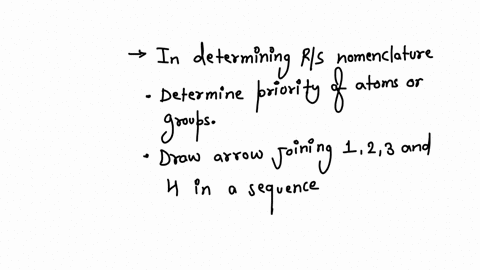 → In determining R/S nomenclature
• Determine priority of atoms or
groups.
• Draw arrow joining 1, 2, 3 and
4 in a sequence